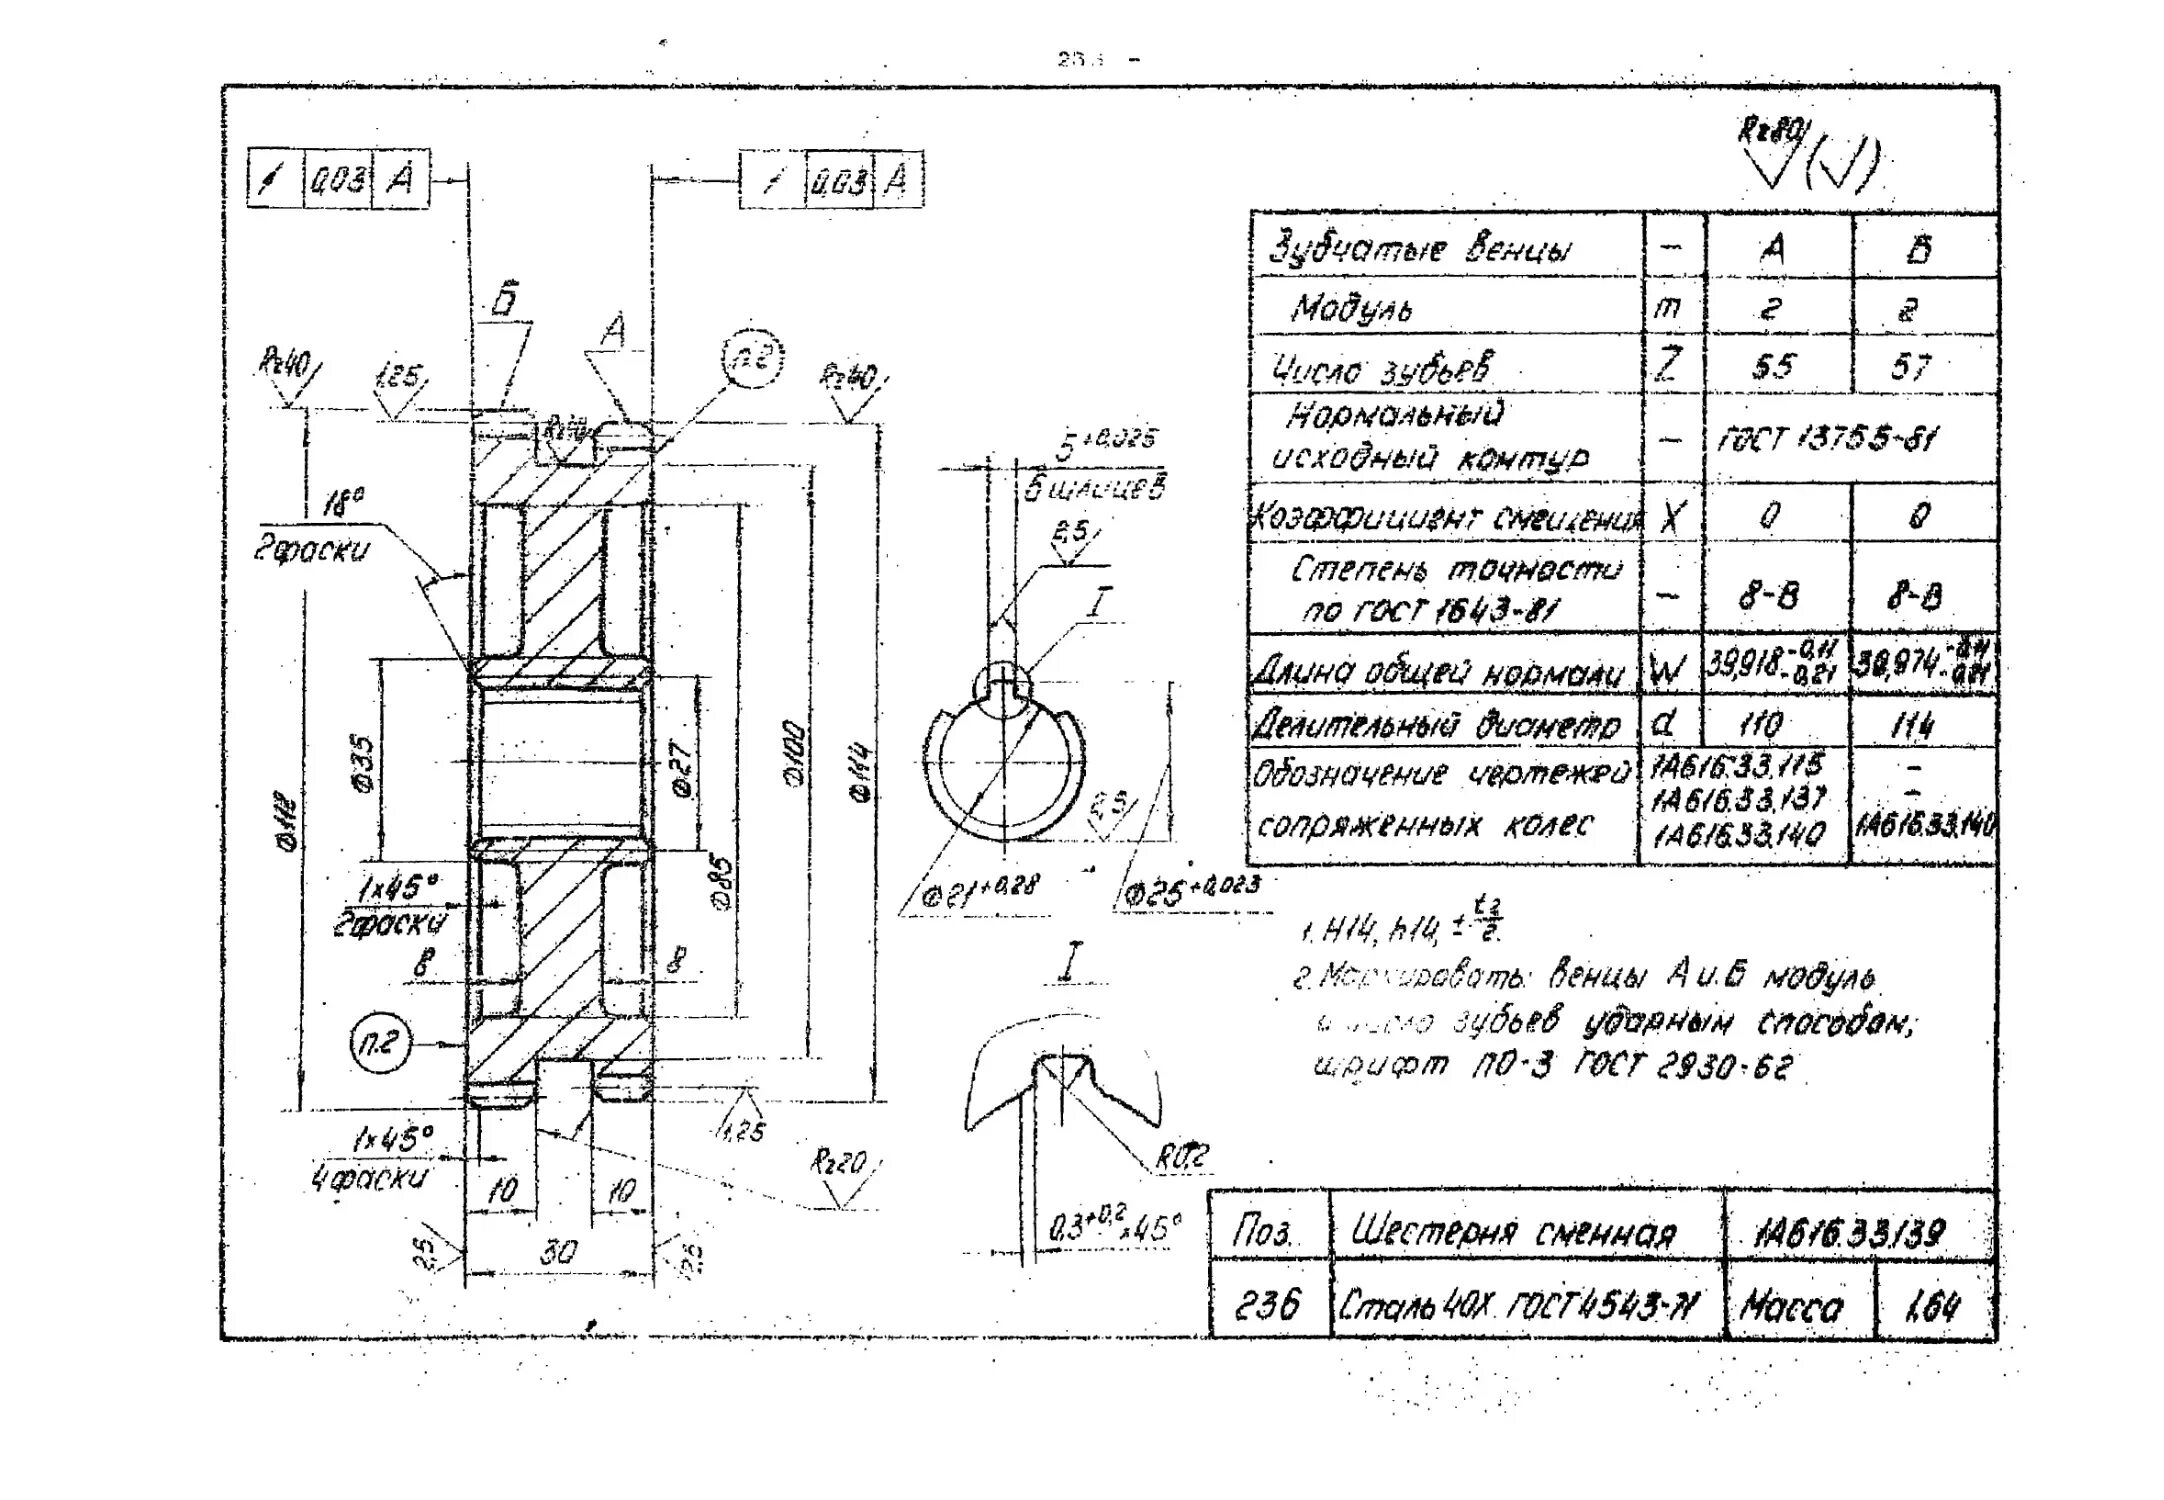 0,03 А
0,03 А
Rz80
(√)
Б
А
п.2
Rz40
1,25
Rz40
Rz40
18°
2 фаски
Ф118
Ф35
Ф27
Ф100
Ф114
Ф85
1×45°
2 фаски
8
8
п.2
1×45°
4 фаски
10
10
1,25
Rz20
2,5
30
2,5
5+0,025
6 шлицев
2,5
I
2,5
Ф21+0,28
Ф25+0,023
I
R0,2
0,3+0,2×45°
Зубчатые венцы – А Б
Модуль m 2 2
Число зубьев Z 55 57
Нормальный
исходный контур – ГОСТ 13755-81
Коэффициент смещения X 0 0
Степень точности
по ГОСТ 1643-81 – 8-В 8-В
Длина общей нормали W 39,918-0,11-0,21 39,974-0,11-0,21
Делительный диаметр d 110 114
Обозначение чертежей 1А616.33.115 –
1А616.33.137 –
сопряженных колес 1А616.33.140 1А616.33.140
1. H14, h14, ± t2/2.
2. Маркировать: венцы А и Б модуль
и число зубьев ударным способом;
шрифт ПО-3 ГОСТ 2930-62
Поз. Шестерня сменная 1А616.33.139
236 Сталь 40Х ГОСТ 4543-71 Масса 1,64